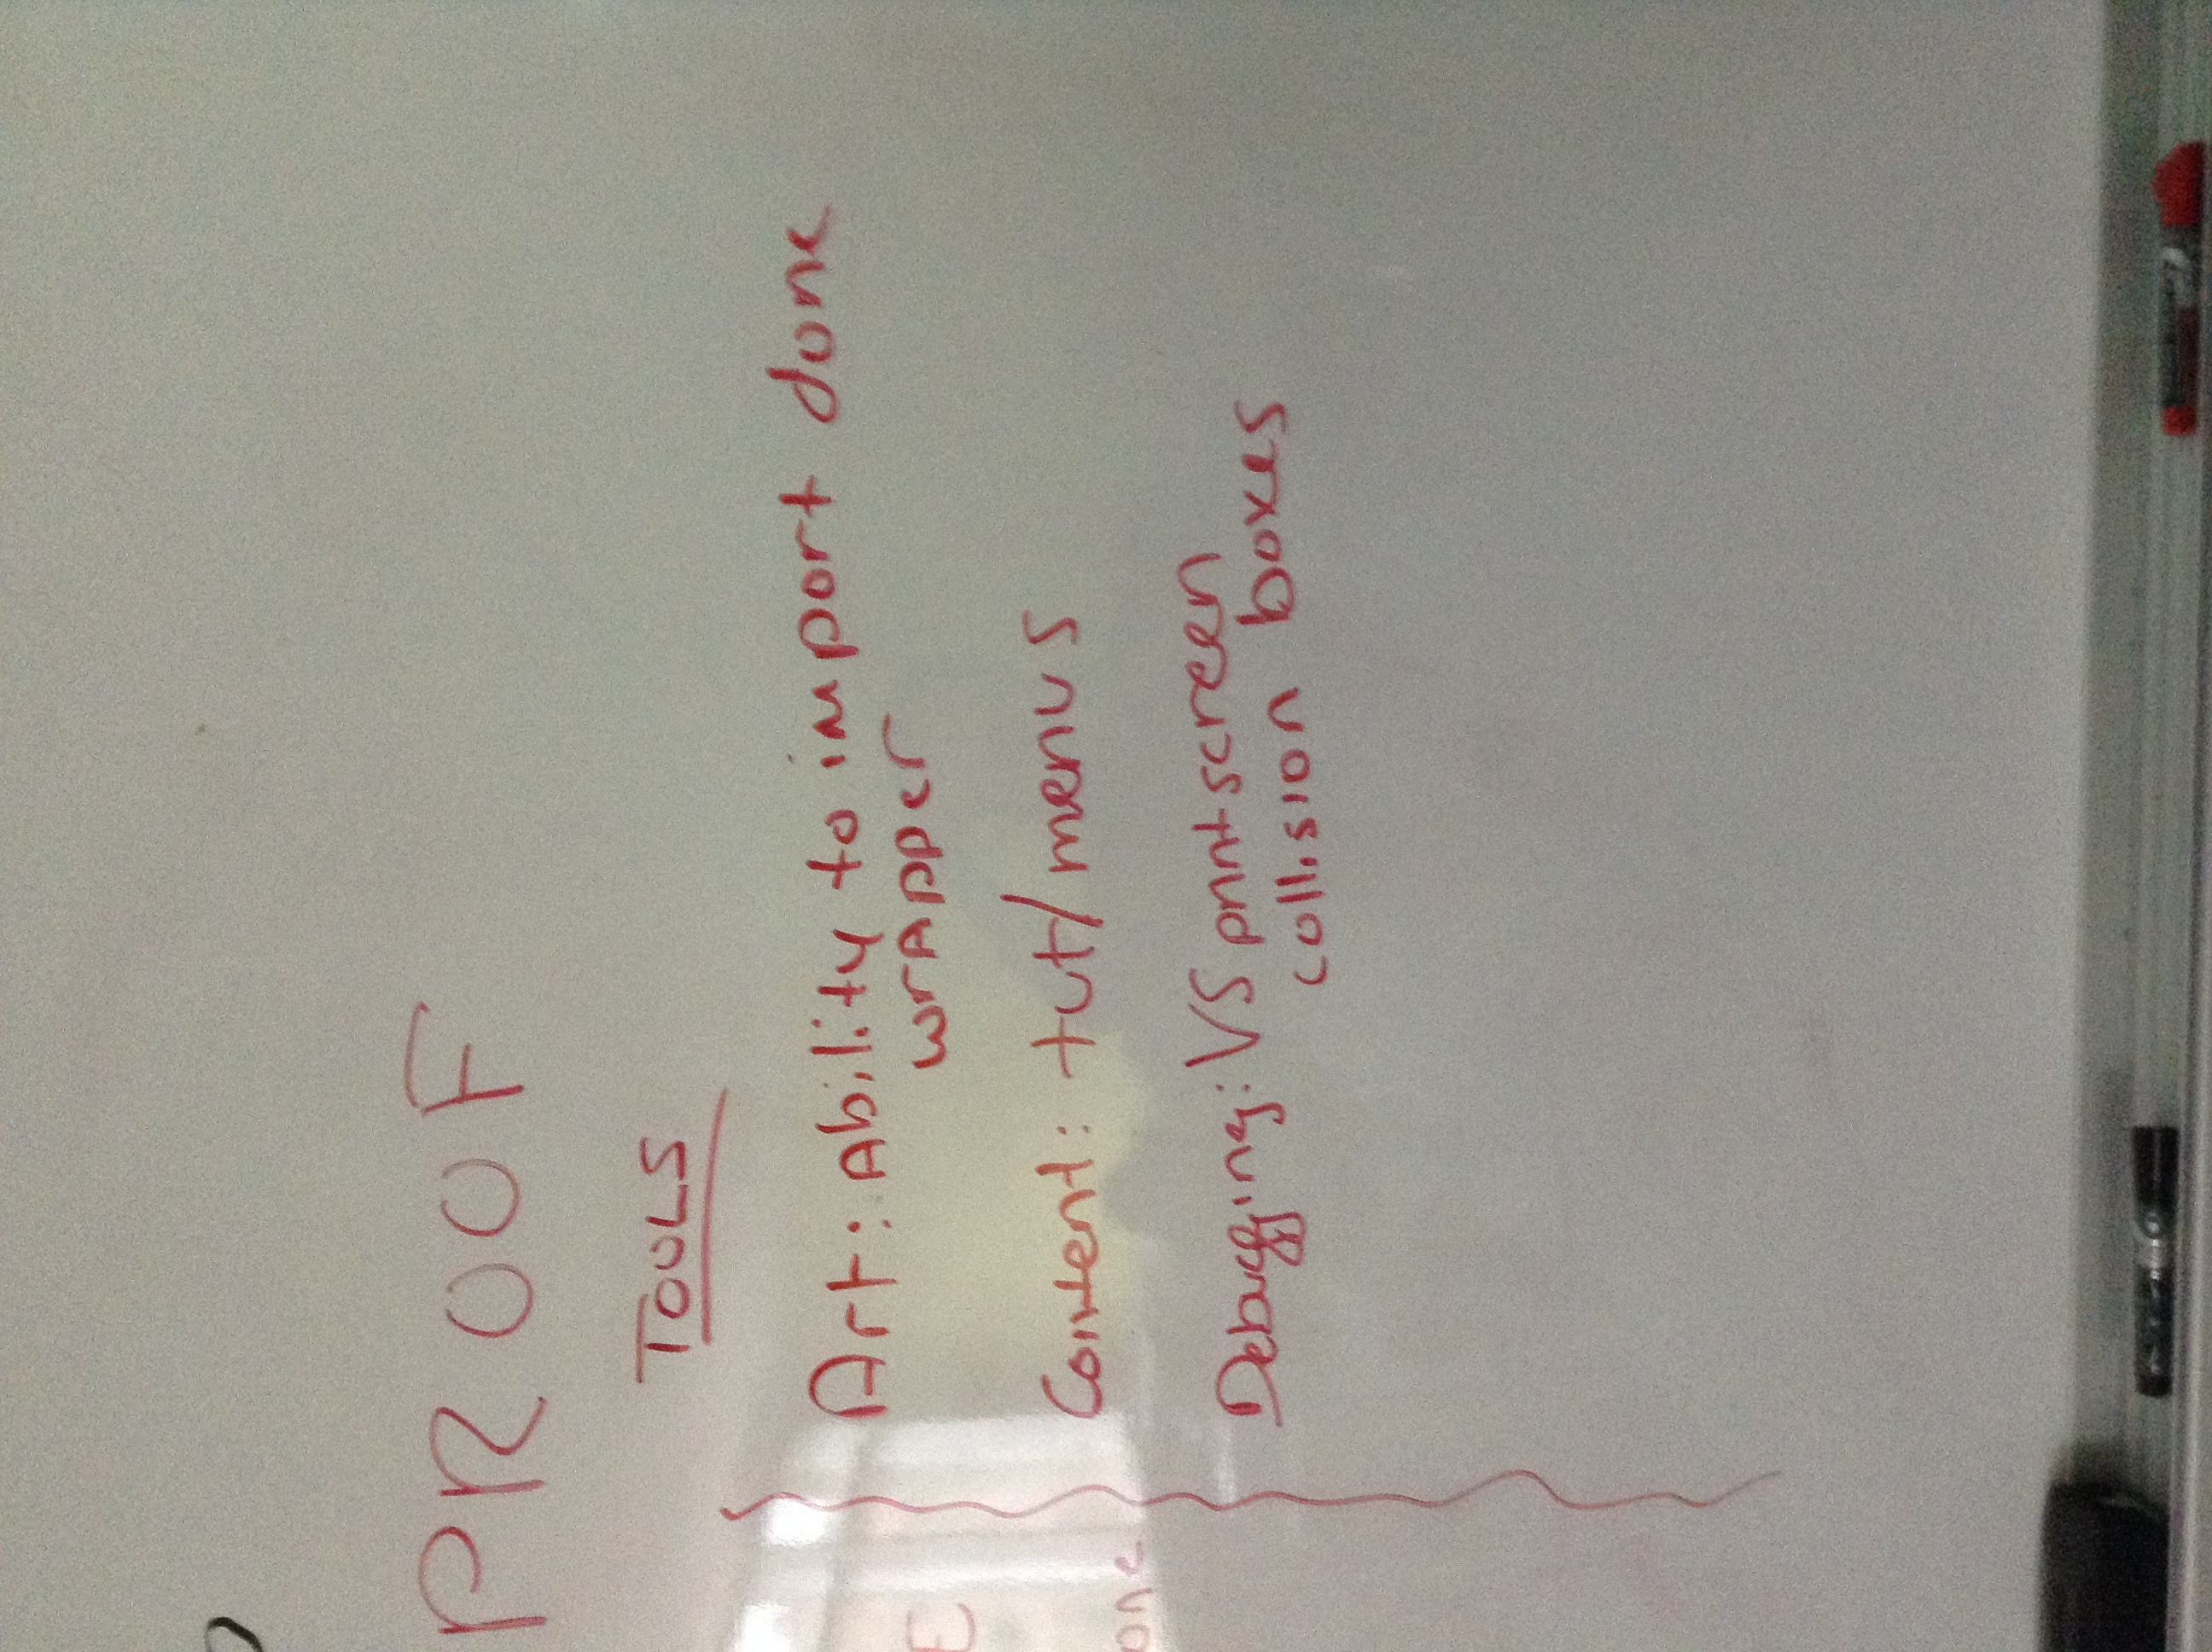 PROOF
TOOLS
Art: Ability to import done
wrapper
E
Content: tut/menus
one
Debugging: VS printscreen
collision boxes